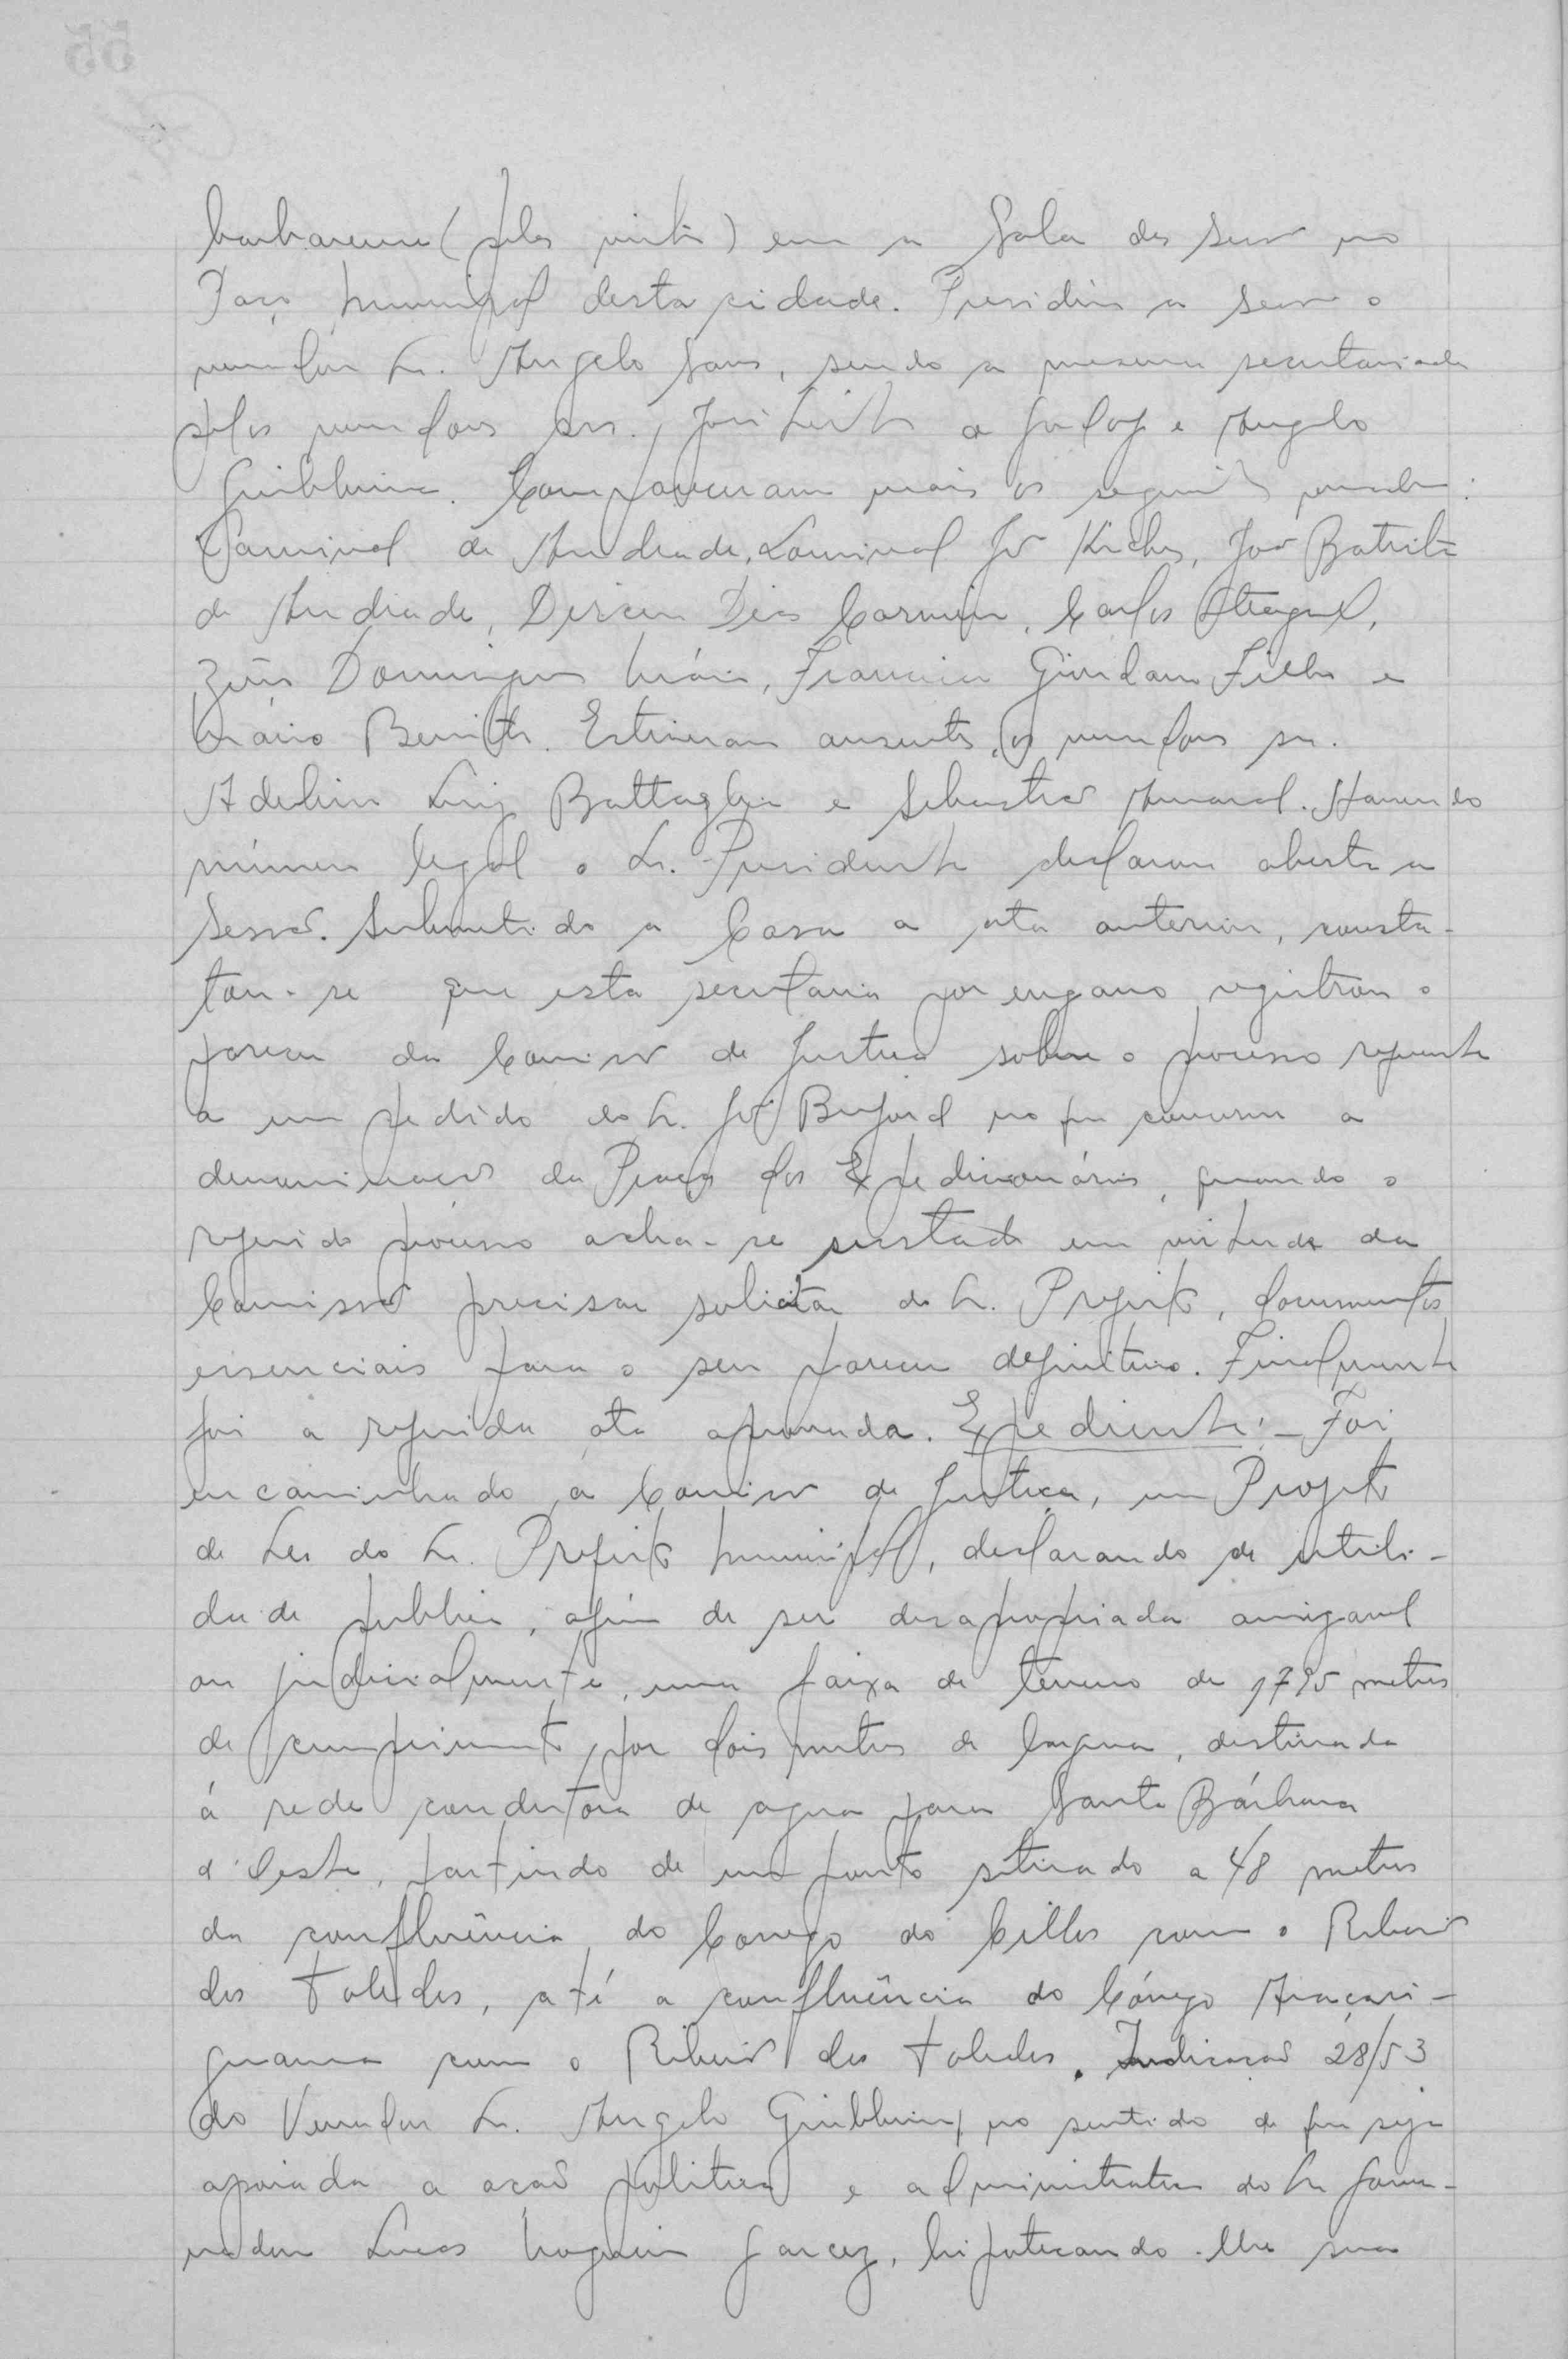 barbarense (pelas vinte) em a Sala das Sessões no
Paço Municipal desta cidade. Presidiu a sessão o
vereador Sr. Angelo Sans, sendo a mesma secretariada
pelos vereadores srs. José Leite de Godoy e Angelo
Giubbina. Compareceram mais os seguintes vereadores:
de Andrade, Lourival José, João Batista
de Andrade, Dirceu Dias Carneiro, Carlos Steagall,
Domingues Mário, Francisco Giordano Filho e
Mário Benito. Estiveram ausentes, os vereadores srs.
Adelino Luiz Battaglia e Sebastião Amaral. Havendo
número legal o Sr. Presidente declarou aberta a
Sessão. Submetido a Casa a ata anterior, consta-
tou-se que esta secretaria por engano registrou o
parecer da Comissão de Justiça sobre o processo referente
a um pedido do Sr. José no que concerne a
denominação da Praça dos Expedicionários, quando o
referido processo acha-se sustado em virtude da
Comissão precisar solicitar do Sr. Prefeito, documentos
essenciais para o seu parecer definitivo. Finalmente
foi a referida ata aprovada. Expediente:- Foi
encaminhado á Comissão de Justiça, um Projeto
de Lei do Sr. Prefeito Municipal, declarando de utili-
dade publica, afim de ser desapropriada amigavel
ou judicialmente, uma faixa de terreno de 1795 metros
de cumprimento por dois metros de largura, destinada
á rede condutora de agua para Santa Bárbara
d'Oeste, partindo de um ponto situado a 48 metros
da confluência do Corrego do Cillos com o Ribeirão
dos Toledos, até a confluência do Córrego Araçari-
guama com o Ribeirão dos Toledos. Indicação 28/53
do Vereador Sr. Angelo Giubbina, no sentido de que seja
apoiada a ação politica e administrativa do Sr. Gover-
nador Lucas Nogueira Garcez, hipotecando-lhe sua